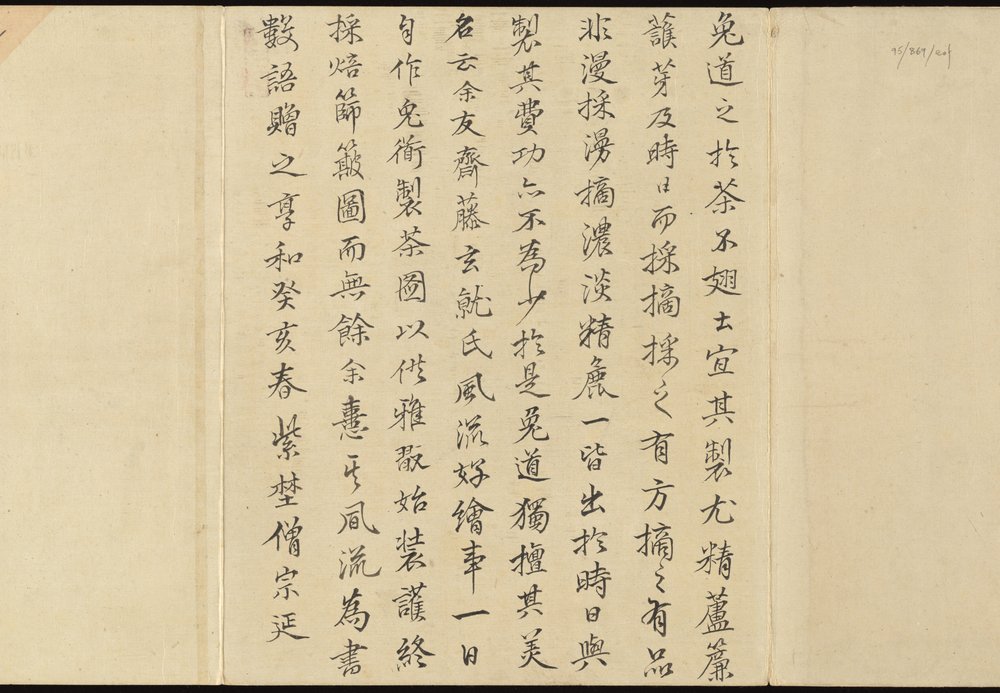 兔道之於茶不翅土宜其製尤精蘆簾
護芽及時日而採摘採之有方摘之有品
非漫採漫摘濃淡精麁一皆出於時日與
製其費功亦不為少於是兔道獨擅其美
名云余友齋藤玄就氏風流好繪事一日
自作兔衜製茶圖以供雅翫始裝護終
採焙篩簸圖而無餘余憙其風流為書
數語贈之享和癸亥春紫埜僧宗延
95/869/